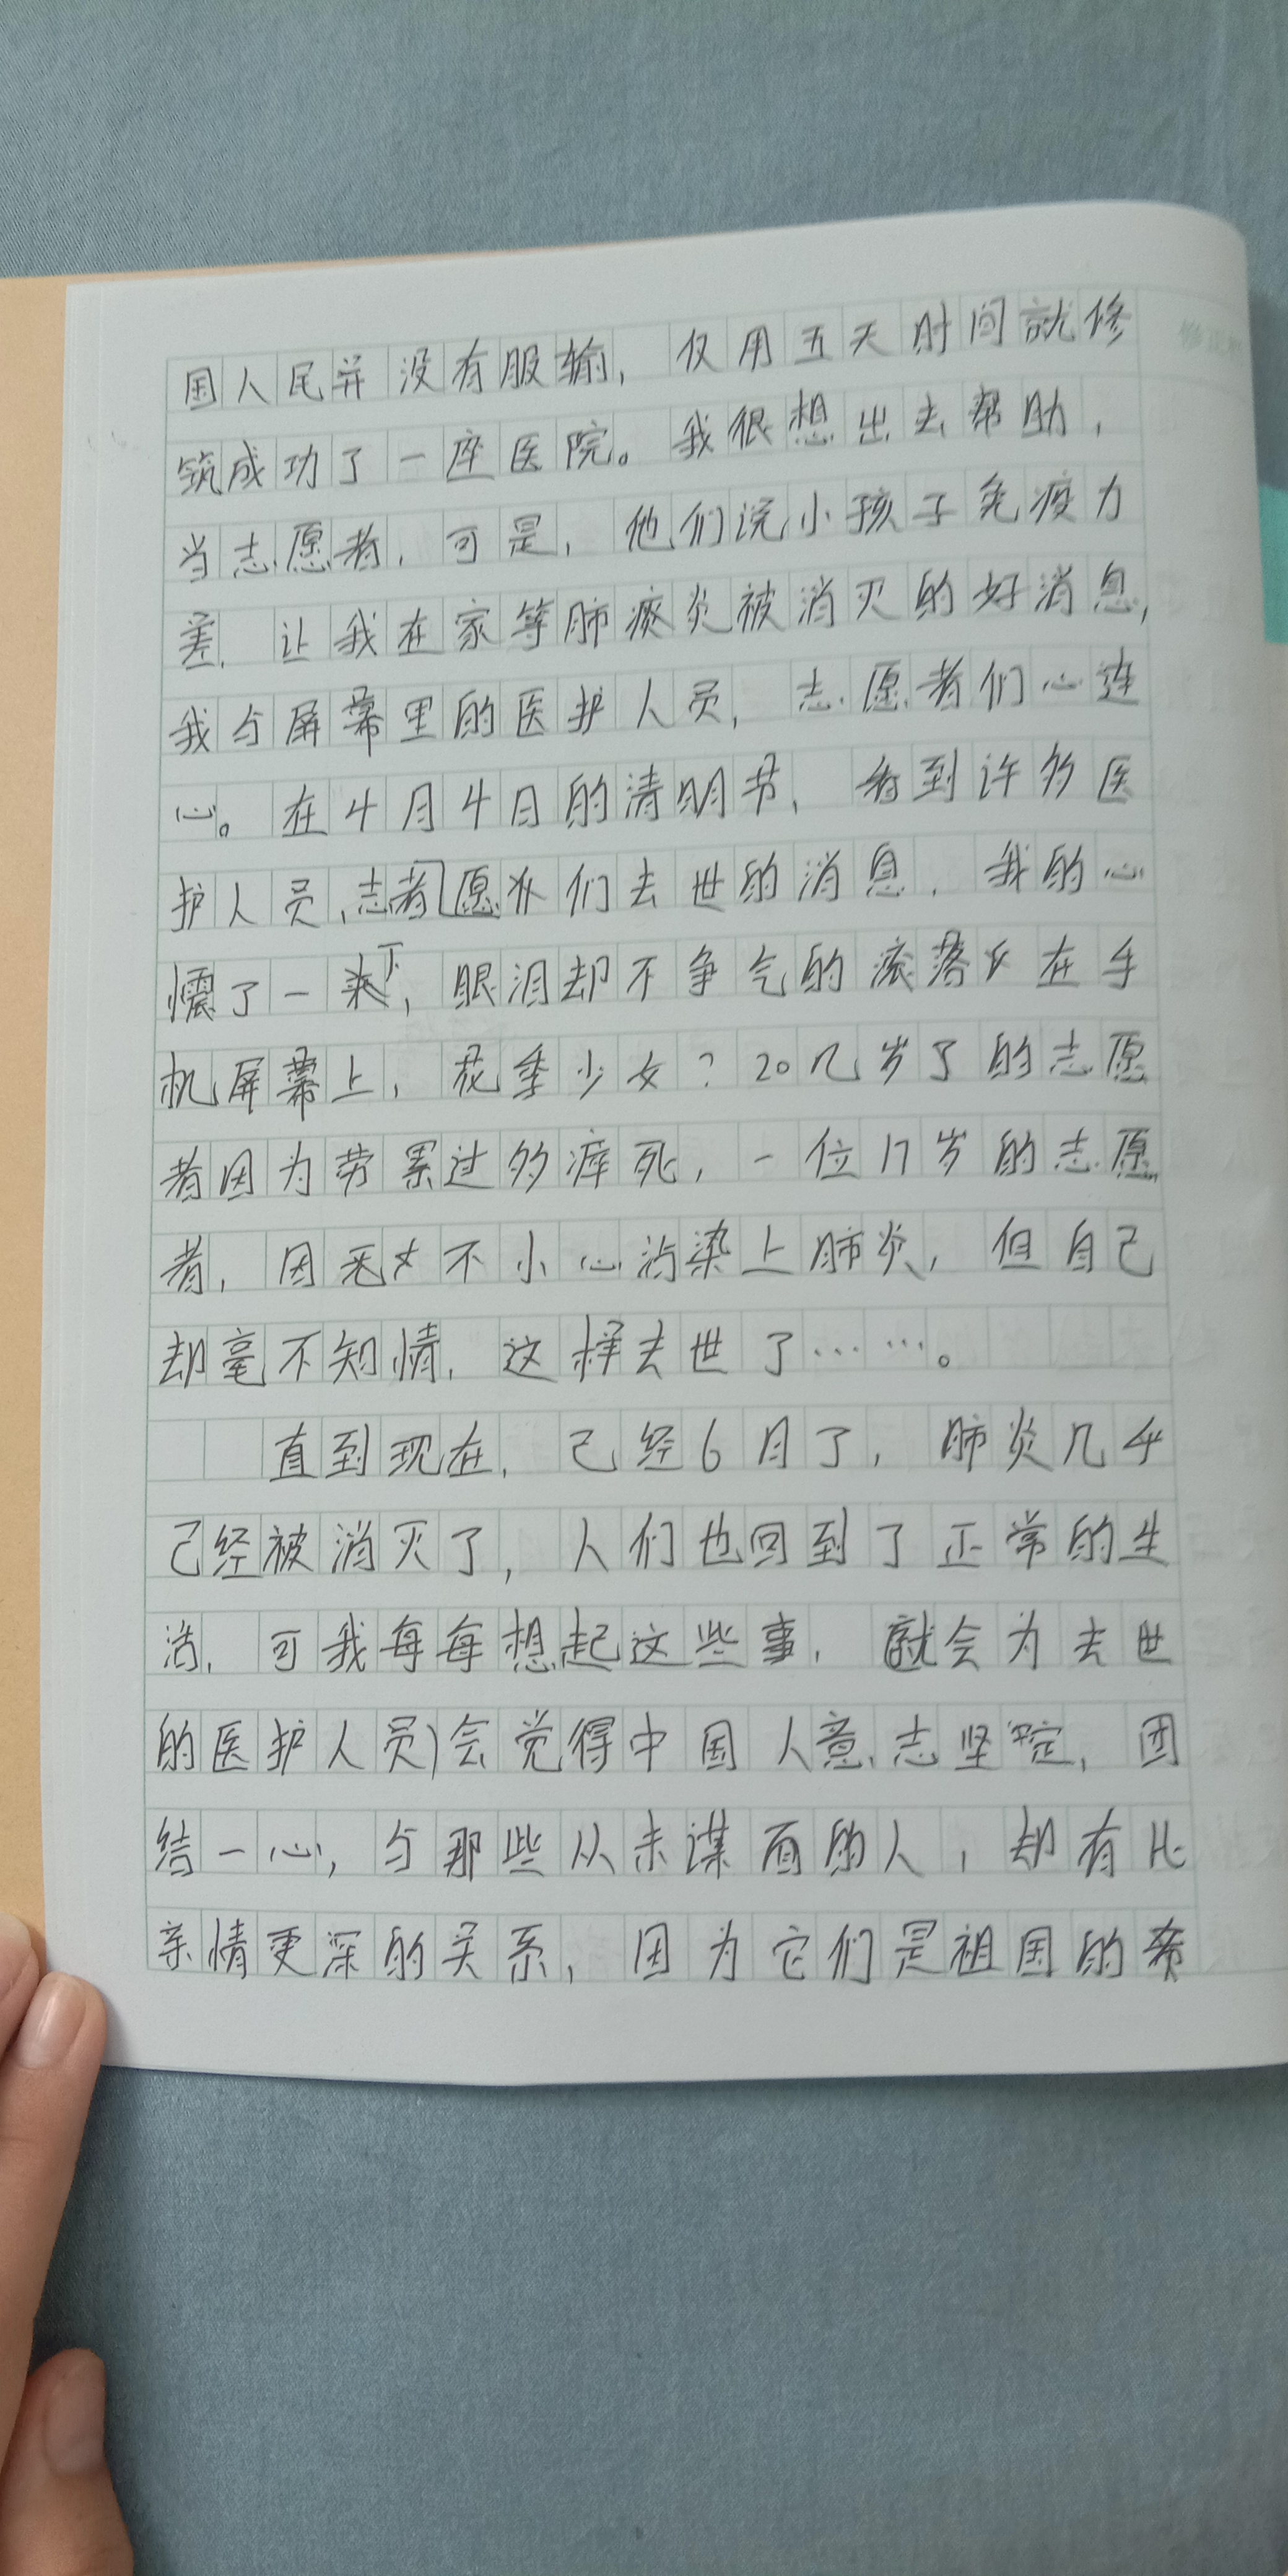 国人民并没有服输，仅用五天时间就修
筑成功了一座医院。我很想出去帮助，
当志愿者，可是，他们说小孩子免疫力
差，让我在家等肺癜炎被消灭的好消息，
我与屏幕里的医护人员，志愿者们心连
心。在4月4日的清明节，看到许多医
护人员、志者愿们去世的消息，我的心
懦了一下，眼泪却不争气的流落在手
机屏幕上，花季少女？20几岁了的志愿
者因为劳累过多瘁死，一位17岁的志愿
者，因不小心沾染上肺炎，但自己
却毫不知情，这样去世了……。
直到现在，己经6月了，肺炎几乎
己经被消灭了，人们也回到了正常的生
活，可我每每想起这些事，就会为去世
的医护人员)会觉得中国人意志坚定，团
结一心，与那些从未谋面的人，却有比
亲情更深的关系，因为它们是祖国的希